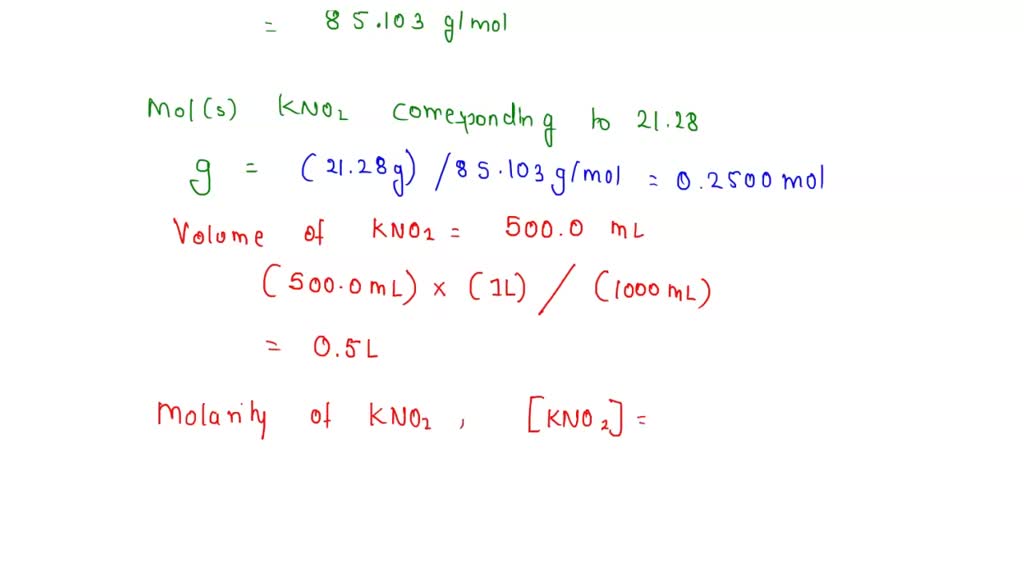 = 85.103 g/mol
Mol(s) KNO₂ corresponding to 21.28
g = (21.28g) / 85.103 g/mol = 0.2500 mol
Volume of KNO₂ = 500.0 mL
(500.0 mL) × (1L) / (1000 mL)
= 0.5L
Molarity of KNO₂ , [KNO₂] =